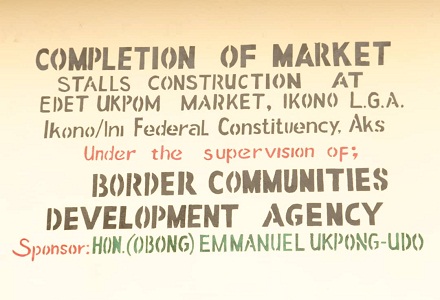 COMPLETION OF MARKET
STALLS CONSTRUCTION AT
EDET UKPOM MARKET, IKONO L.G.A.
Ikono/Ini Federal Constituency, Aks
Under the supervision of;
BORDER COMMUNITIES
DEVELOPMENT AGENCY
Sponsor: HON. (OBONG) EMMANUEL UKPONG-UDO